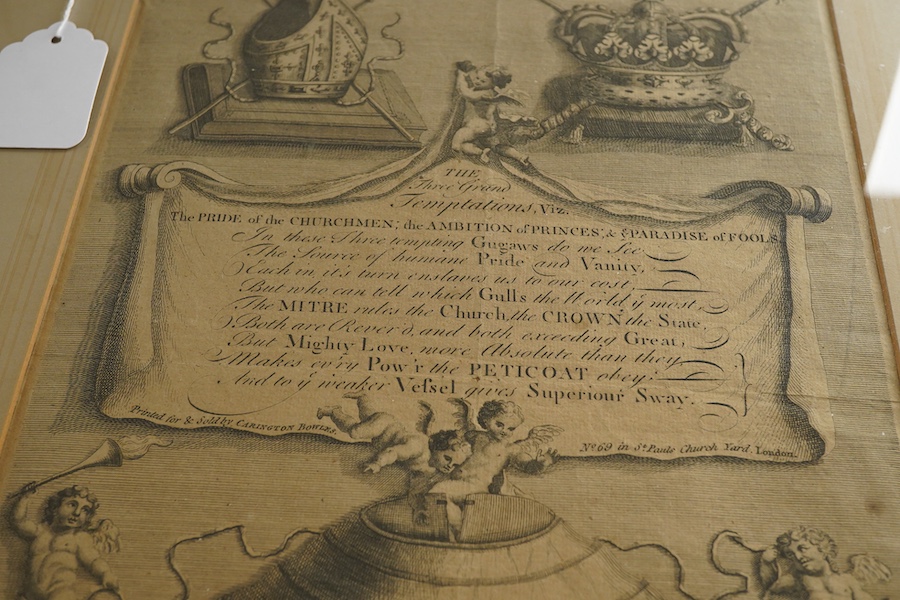 THE
Three Grand
Temptations, Viz.
The PRIDE of the CHURCHMEN; the AMBITION of PRINCES, & yͤ PARADISE of FOOLS.
In these Three tempting Gugaws do we See
The Source of humane Pride and Vanity,
Each in it's turn enslaves us to our cost,
But who can tell which Gulls the World yͤ most,
The MITRE rules the Church, the CROWN the State,
Both are Rever'd, and both exceeding Great,
But Mighty Love, more Absolute than they
Makes ev'ry Pow'r the PETICOAT obey:
And to yͤ weaker Veſsel gives Superiour Sway.
Printed for & Sold by CARINGTON BOWLES,
Nº 69 in Sᵗ Pauls Church Yard, London.